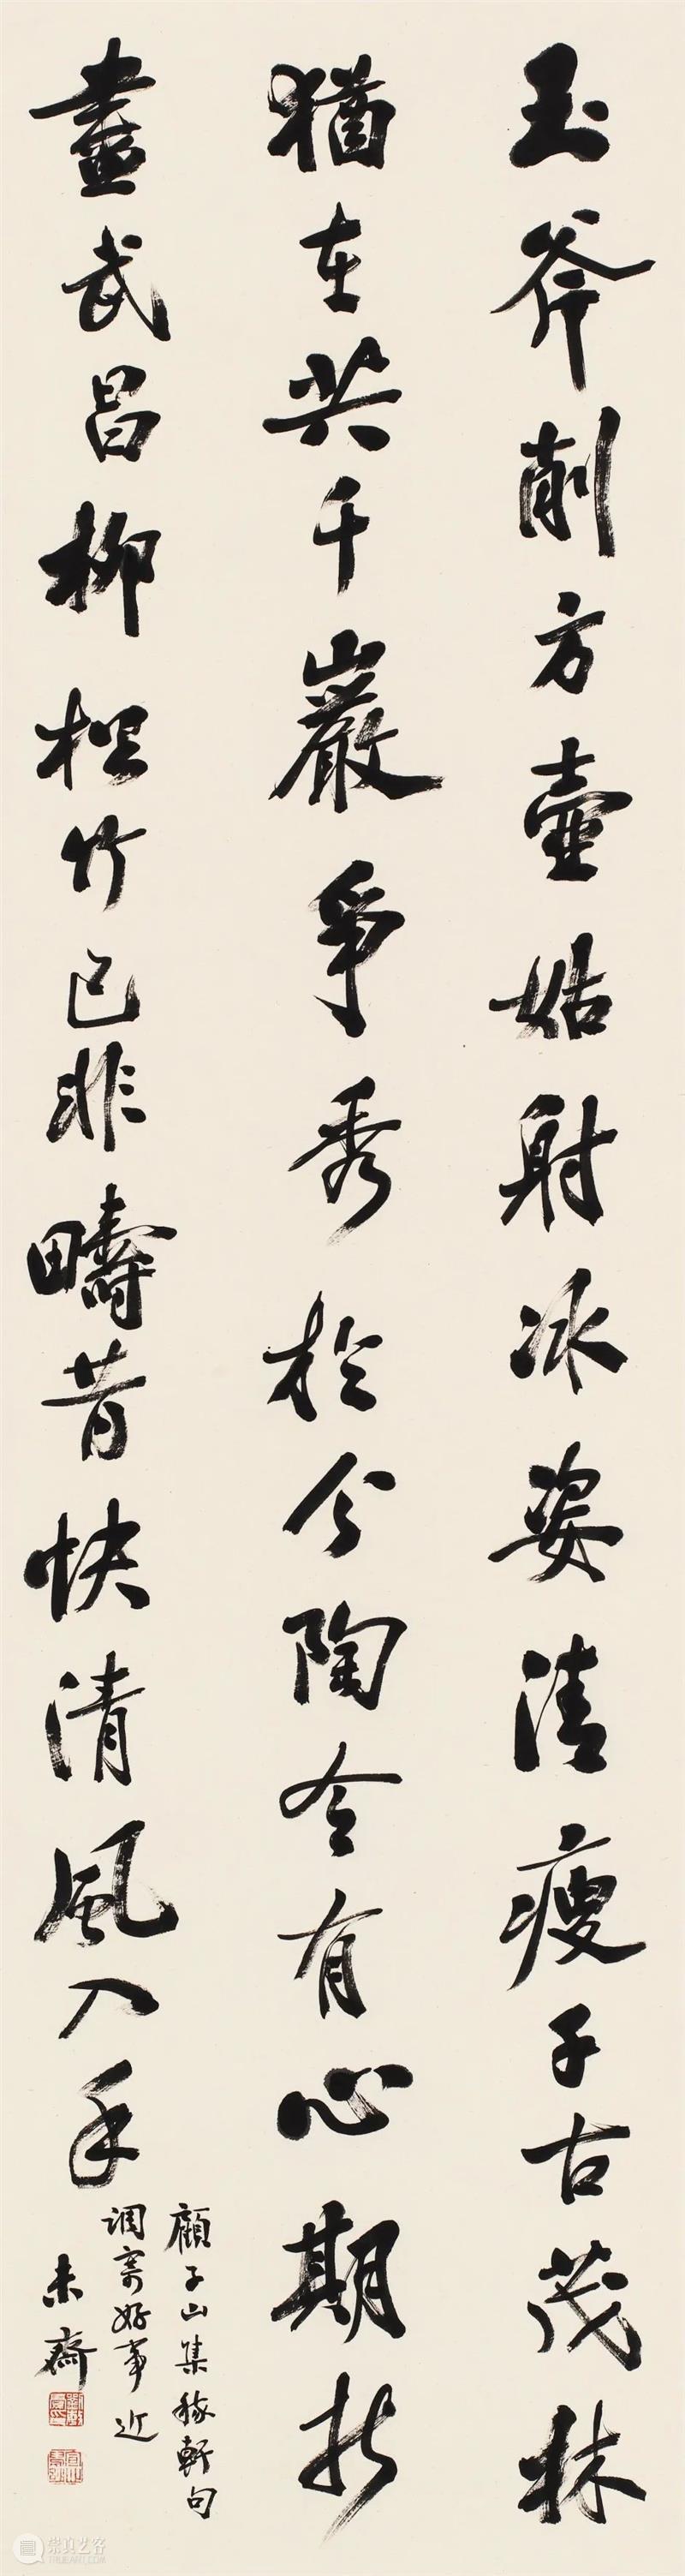 玉斧削方壺姑射冰姿清瘦千古茂林
猶在共千巖爭秀於今陶令有心期折
盡武昌柳松竹已非疇昔快清風入手
顧子山集稼軒句
調寄好事近
未齋
崇真艺客